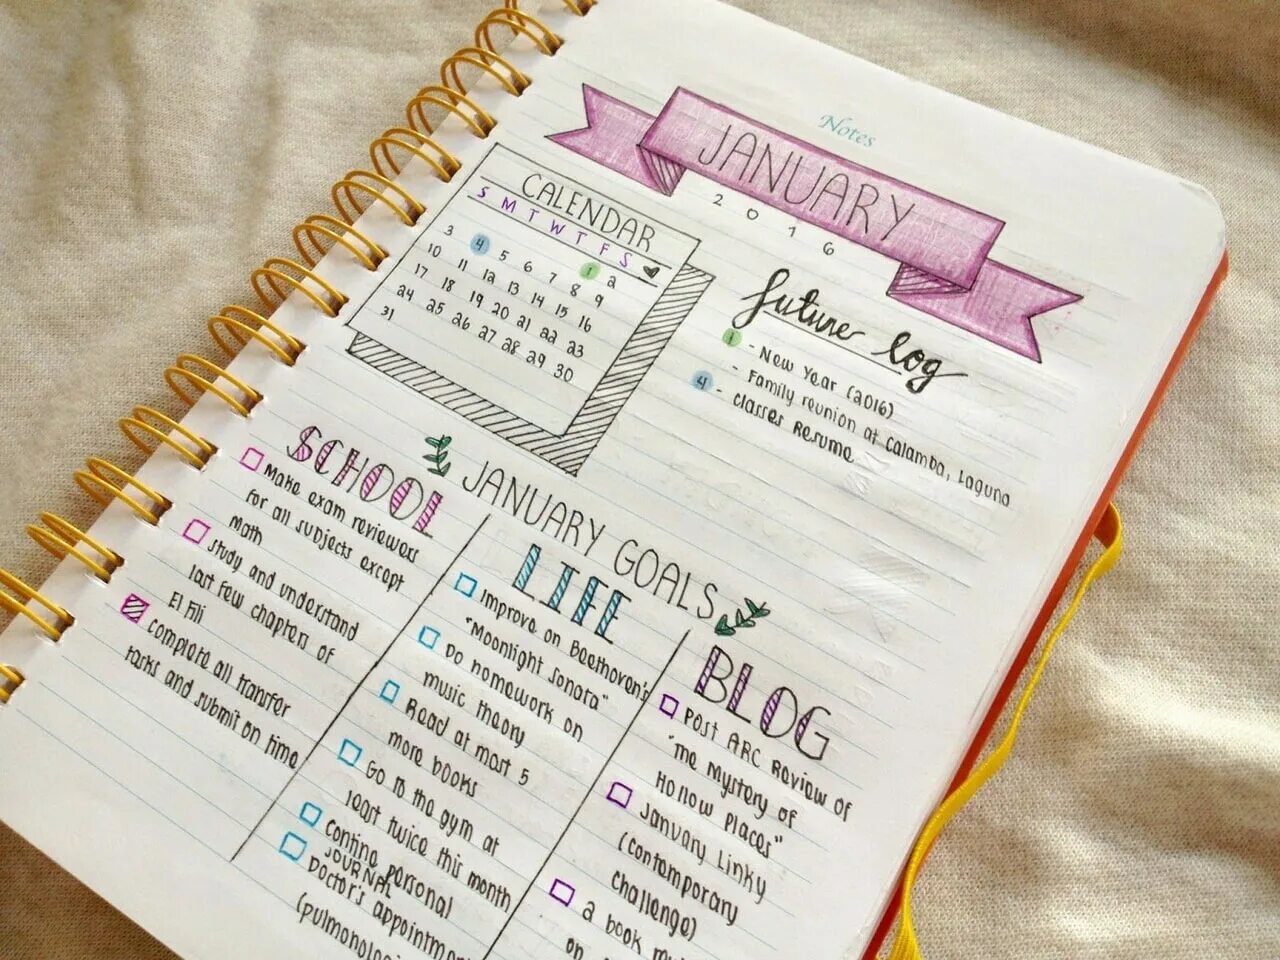 Notes
JANUARY
2016
CALENDAR
S M T W T F S
1 2
3 4 5 6 7 8 9
10 11 12 13 14 15 16
17 18 19 20 21 22 23
24 25 26 27 28 29 30
31
future log
1 - New Year (2016)
- Family reunion at Calamba, Laguna
4 - classes Resume
JANUARY GOALS
SCHOOL
Make exam reviewers
for all subjects except
Math
Study and understand
last few chapters of
El Fili
Complete all transfer
tasks and submit on time
LIFE
Improve on Beethoven's
"Moonlight Sonata"
Do homework on
music theory
Read at most 5
more books
Go to the gym at
least twice this month
Continue personal
JOURNAL
Doctor's appointment
BLOG
Post ARC Review of
"The Mystery of
Hollow Places"
January Linky
(Contemporary
Challenge)
a book
on